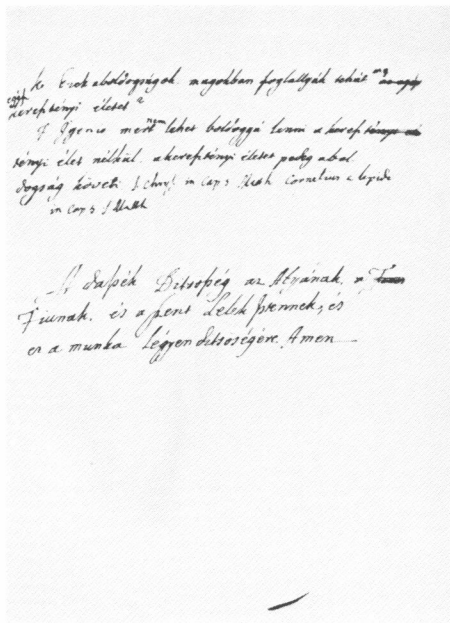 K. Ezek a boldogságok magokban foglallyák tehát az
egész kereſztényi életet?
F. Igenis mert nem lehet boldoggá lenni a kereſz
tényi élet nélkül. a kereſztényi életet pedig a bol
dogság követi. S. Chryſ. in Cap. 5 Math. Cornelius a lapide
in Cap. 5 S Math
Ditsoſség az Atyának, a
Fiunak, és a ſzent Lélek Iſtennek, és
ez a munka légyen ditsöségére. Amen